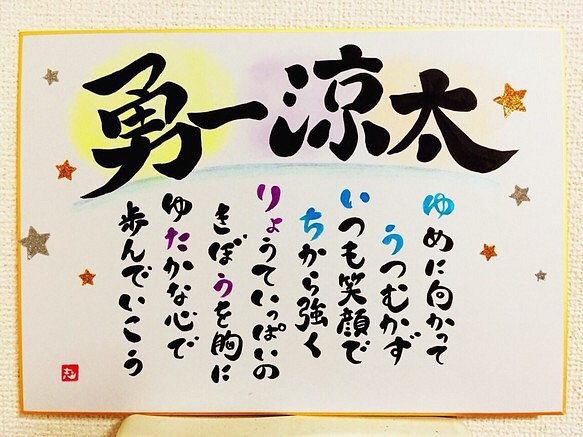 勇一 涼太
ゆめに向かって
うつむかず
いつも笑顔で
ちから強く
りょうていっぱいの
きぼうを胸に
ゆたかな心で
歩んでいこう